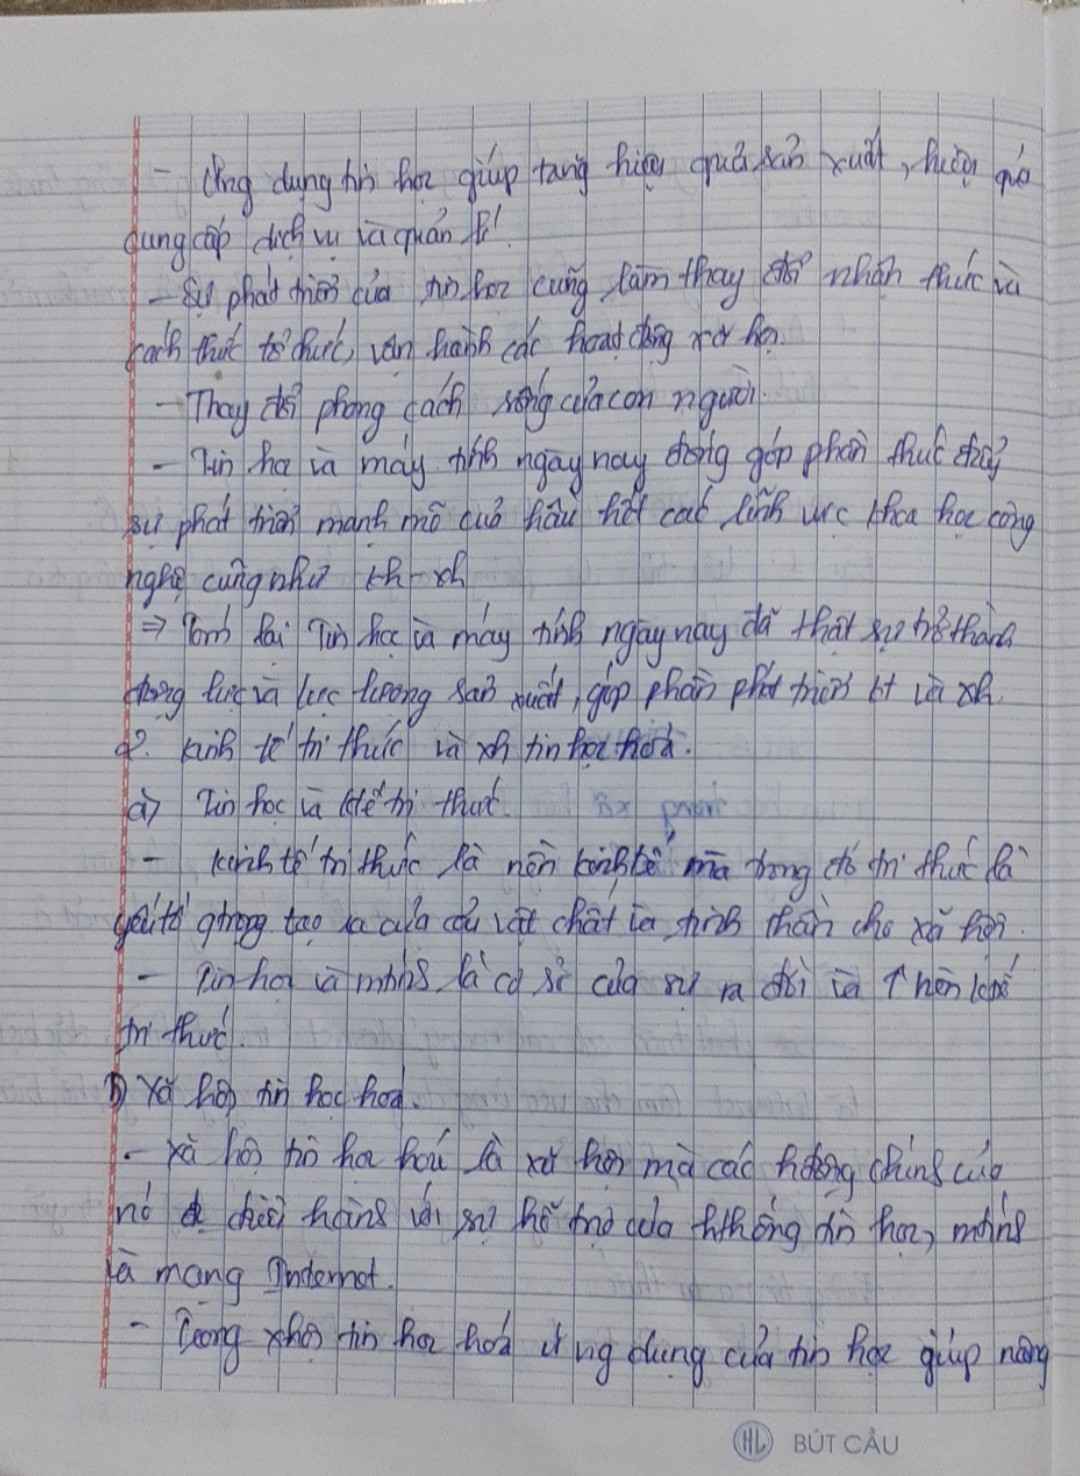 - Ứng dụng tin học giúp tăng hiệu quả sản xuất, hiệu quả
cung cấp dịch vụ và quản lí.
- Sự phát triển của tin học cũng làm thay đổi nhận thức và
cách thức tổ chức, vận hành các hoạt động xã hội.
- Thay đổi phong cách sống của con người.
- Tin học và máy tính ngày nay đóng góp phần thúc đẩy
sự phát triển mạnh mẽ của hầu hết các lĩnh vực khoa học công
nghệ cũng như kh-xh
⇒ Tóm lại Tin học và máy tính ngày nay đã thật sự trở thành
động lực và lực lượng sản xuất, góp phần phát triển kt và xh.
2. Kinh tế tri thức và xh tin học hoá.
a) Tin học và ktế tri thức.
- Kinh tế tri thức là nền kinh tế mà trong đó tri thức là
yếu tố qtrọng tạo ra của cải vật chất và tinh thần cho xã hội.
- Tin học và mtính là cơ sở của sự ra đời và ↑ nền ktế
tri thức.
b) Xã hội tin học hoá.
- Xã hội tin học hoá là xã hội mà các hđộng chính của
nó đc điều hành với sự hỗ trợ của hthống tin học, mtính
và mạng Internet.
- Trong xhội tin học hoá ứng dụng của tin học giúp nâng
HL BÚT CẦU